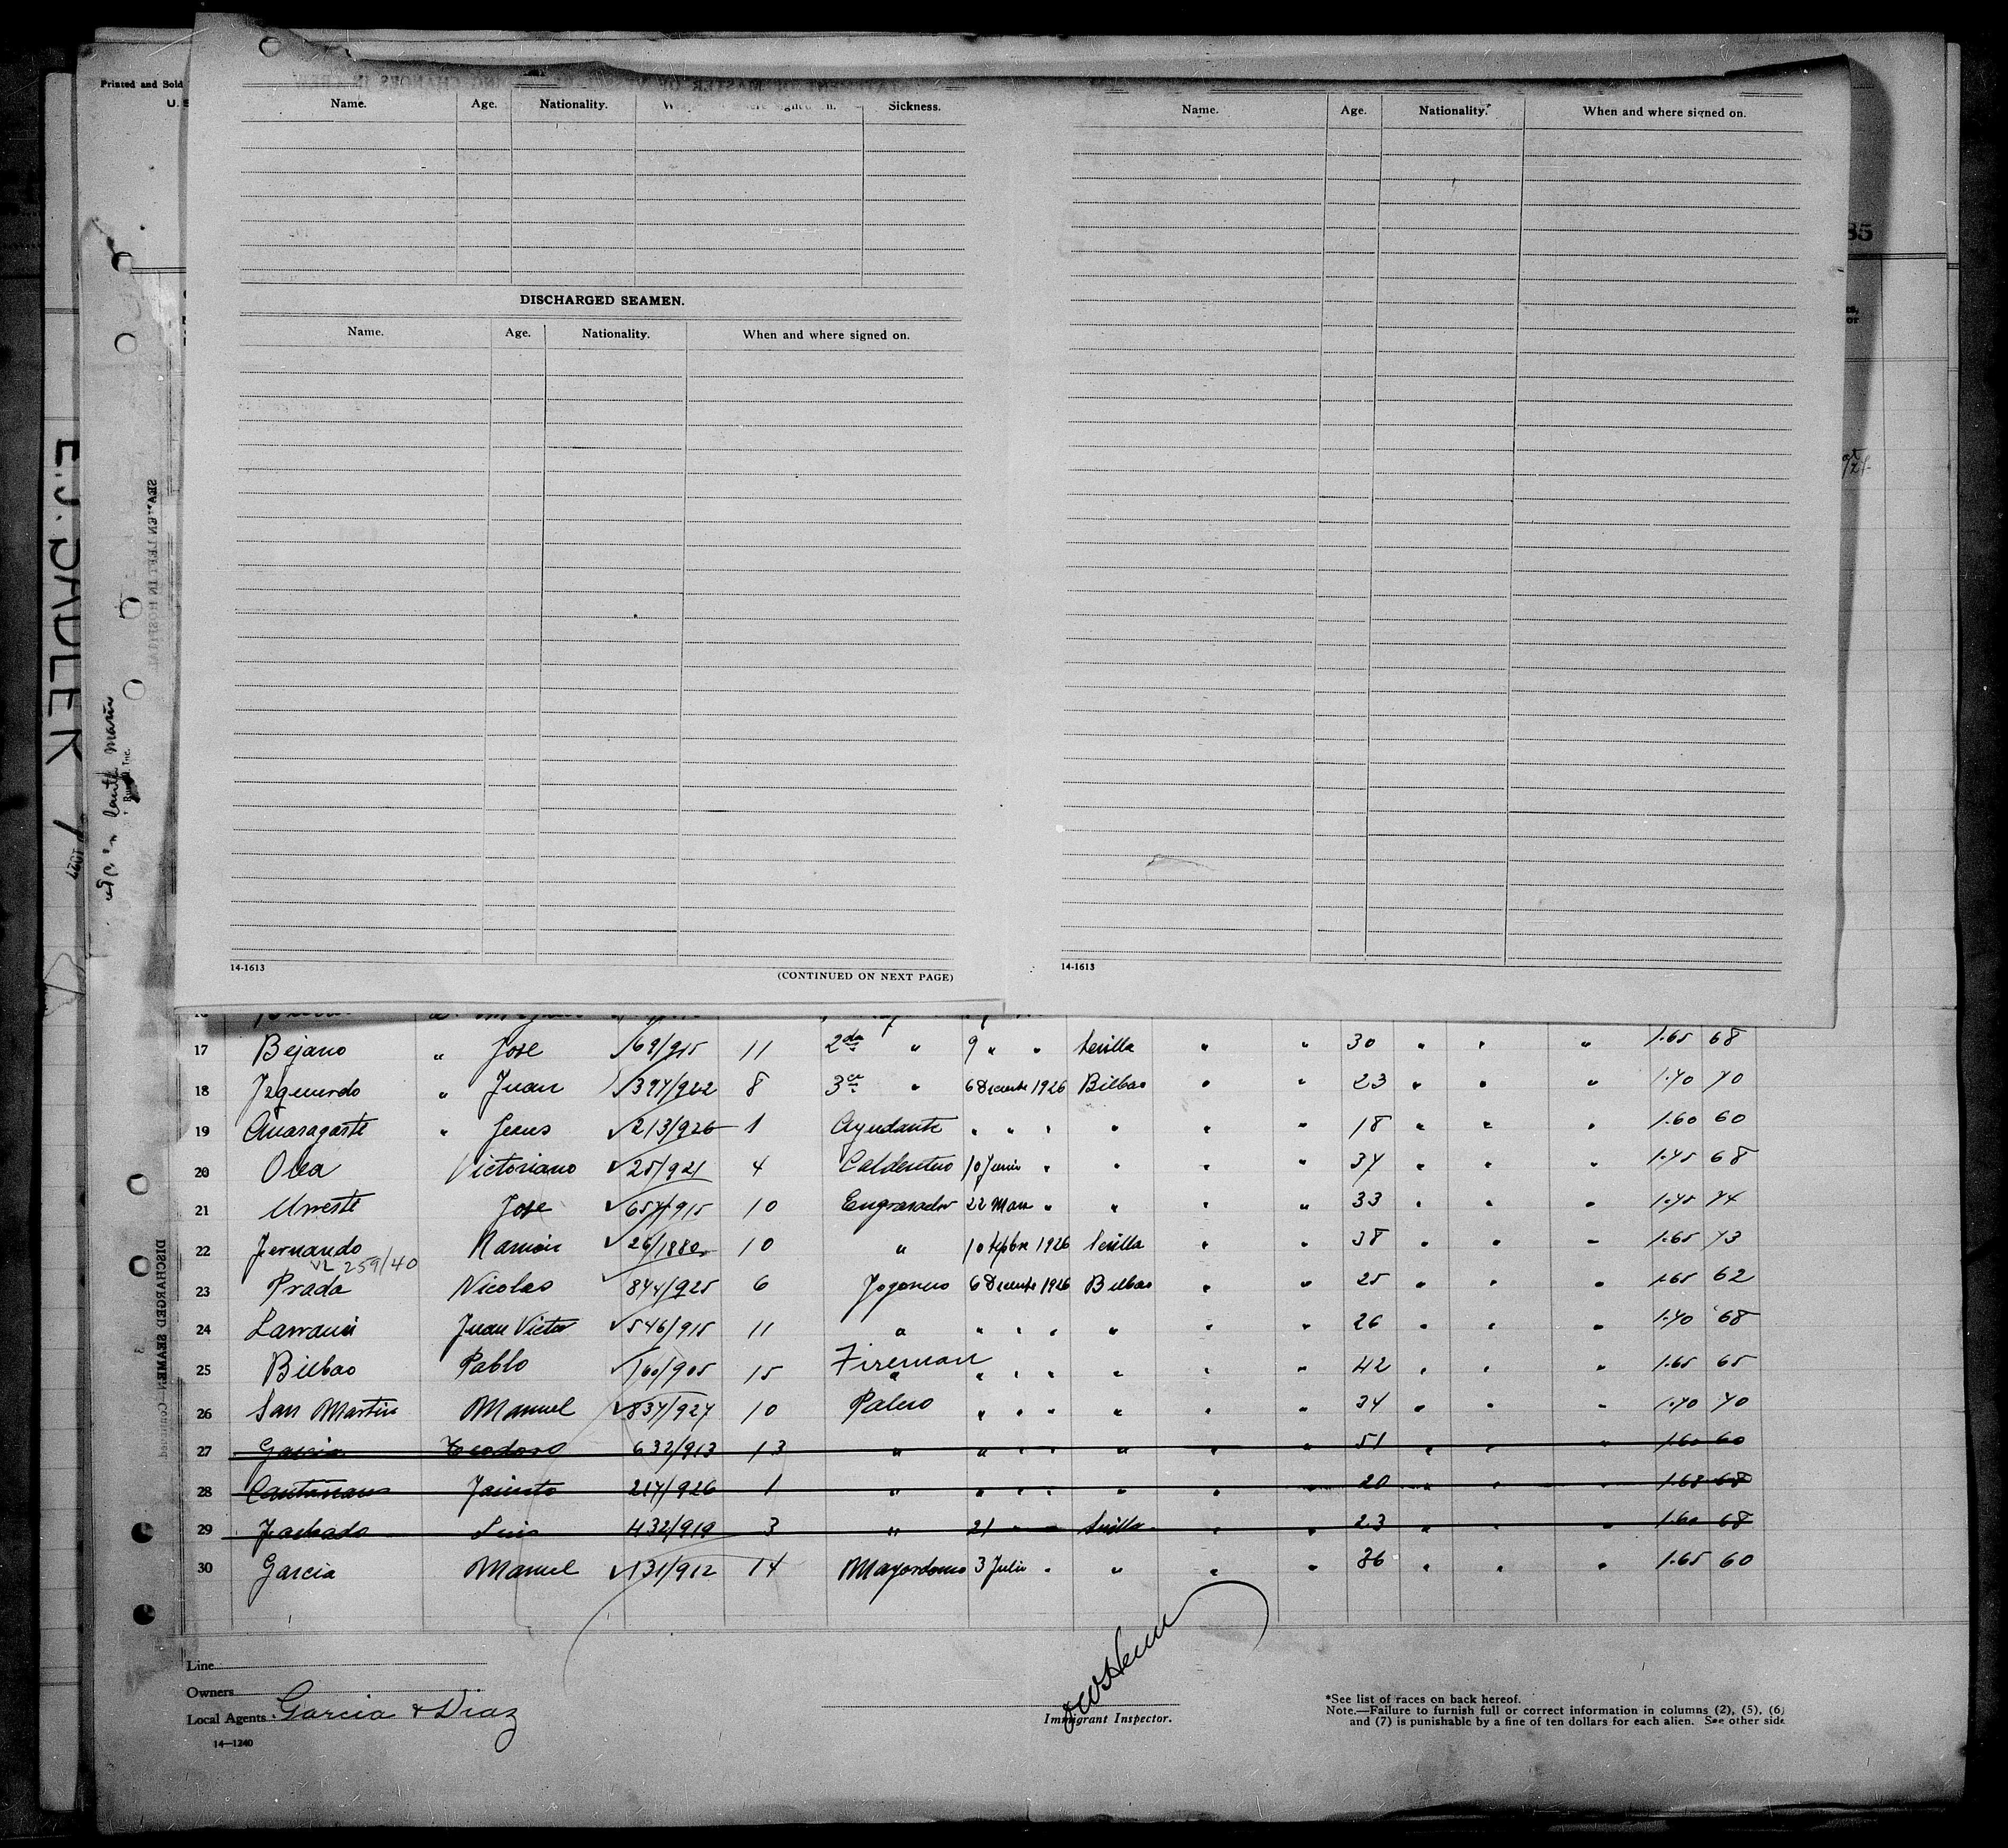 Printed and Sold
U. S
Name. Age. Nationality. Sickness.
Name. Age. Nationality. When and where signed on.
85
DISCHARGED SEAMEN.
Name. Age. Nationality. When and where signed on.
14-1613
(CONTINUED ON NEXT PAGE)
14-1613
17 Bejano " Jose √69/915 11 2da " 9 " " Sevilla " " 30 " " " 1.65 68
18 " Juan 397/922 8 3er " 6 1926 Bilbao " " 23 " " " 1.70 70
19 " Jesus √213/926 1 Ayudante " " " " " " 18 " " " 1.60 60
20 Olea Victoriano √25/921 4 10 Junio " " " " 37 " " " 1.75 68
21 Jose √657/915 10 Engrasador 22 " " " " 33 " " " 1.75 74
22 Fernando Ramón √26/1880 10 " 10 1926 Sevilla " " 38 " " " 1.65 73
VL 259/40
23 Prada Nicolas √ 844/925 6 Fogonero 6 1926 Bilbao " " 25 " " " 1.65 62
24 Juan Victor √546/915 11 " " " " " " " 26 " " " 1.70 68
25 Bilbao Pablo √160/905 15 Fireman " " " " " " " 42 " " " 1.65 65
26 San Martin Manuel √837/927 10 Palero " " " " " " 34 " " " 1.70 70
27 Garcia Teodoro 632/913 13 " " " " " " " 51 " " " 1.60 60
28 Jacinto 217/926 1 " " " " " " " 20 " " " 1.68 68
29 Luis 432/919 3 " 21 " " Sevilla " " 23 " " " 1.60 68
30 Garcia Manuel √131/912 14 Mayordomo 3 Julio " " " " 36 " " " 1.65 60
Line
Owners
Local Agents Garcia & Diaz
14—1240
Immigrant Inspector.
*See list of races on back hereof.
Note.—Failure to furnish full or correct information in columns (2), (5), (6)
and (7) is punishable by a fine of ten dollars for each alien. See other side
E. J. SADLER
1927
SEAMEN LEFT IN HOSPITAL
DISCHARGED SEAMEN—Continued